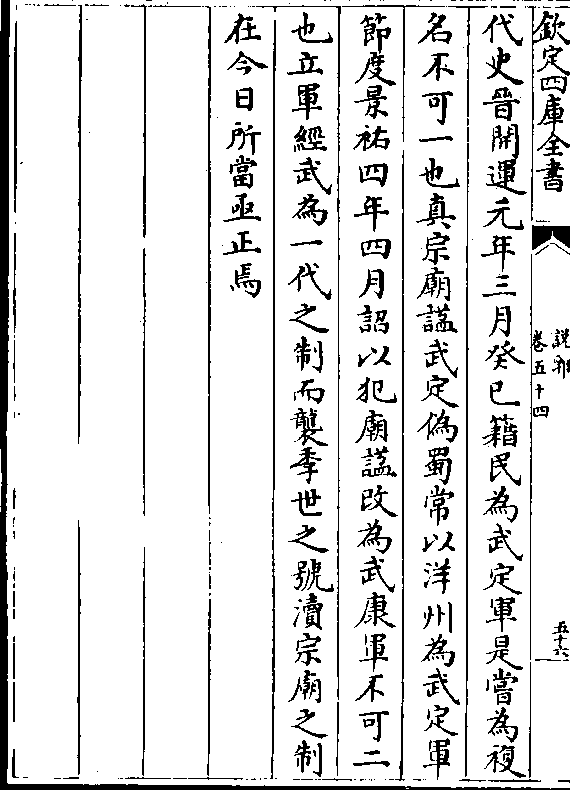 欽定四庫全書
說郛
卷五十四
五十六
代史晉開運元年三月癸巳籍民為武定軍是嘗為複
名不可一也真宗廟諡武定偽蜀常以洋州為武定軍
節度景祐四年四月詔以犯廟諡改為武康軍不可二
也立軍經武為一代之制而襲季世之號瀆宗廟之制
在今日所當亟正焉